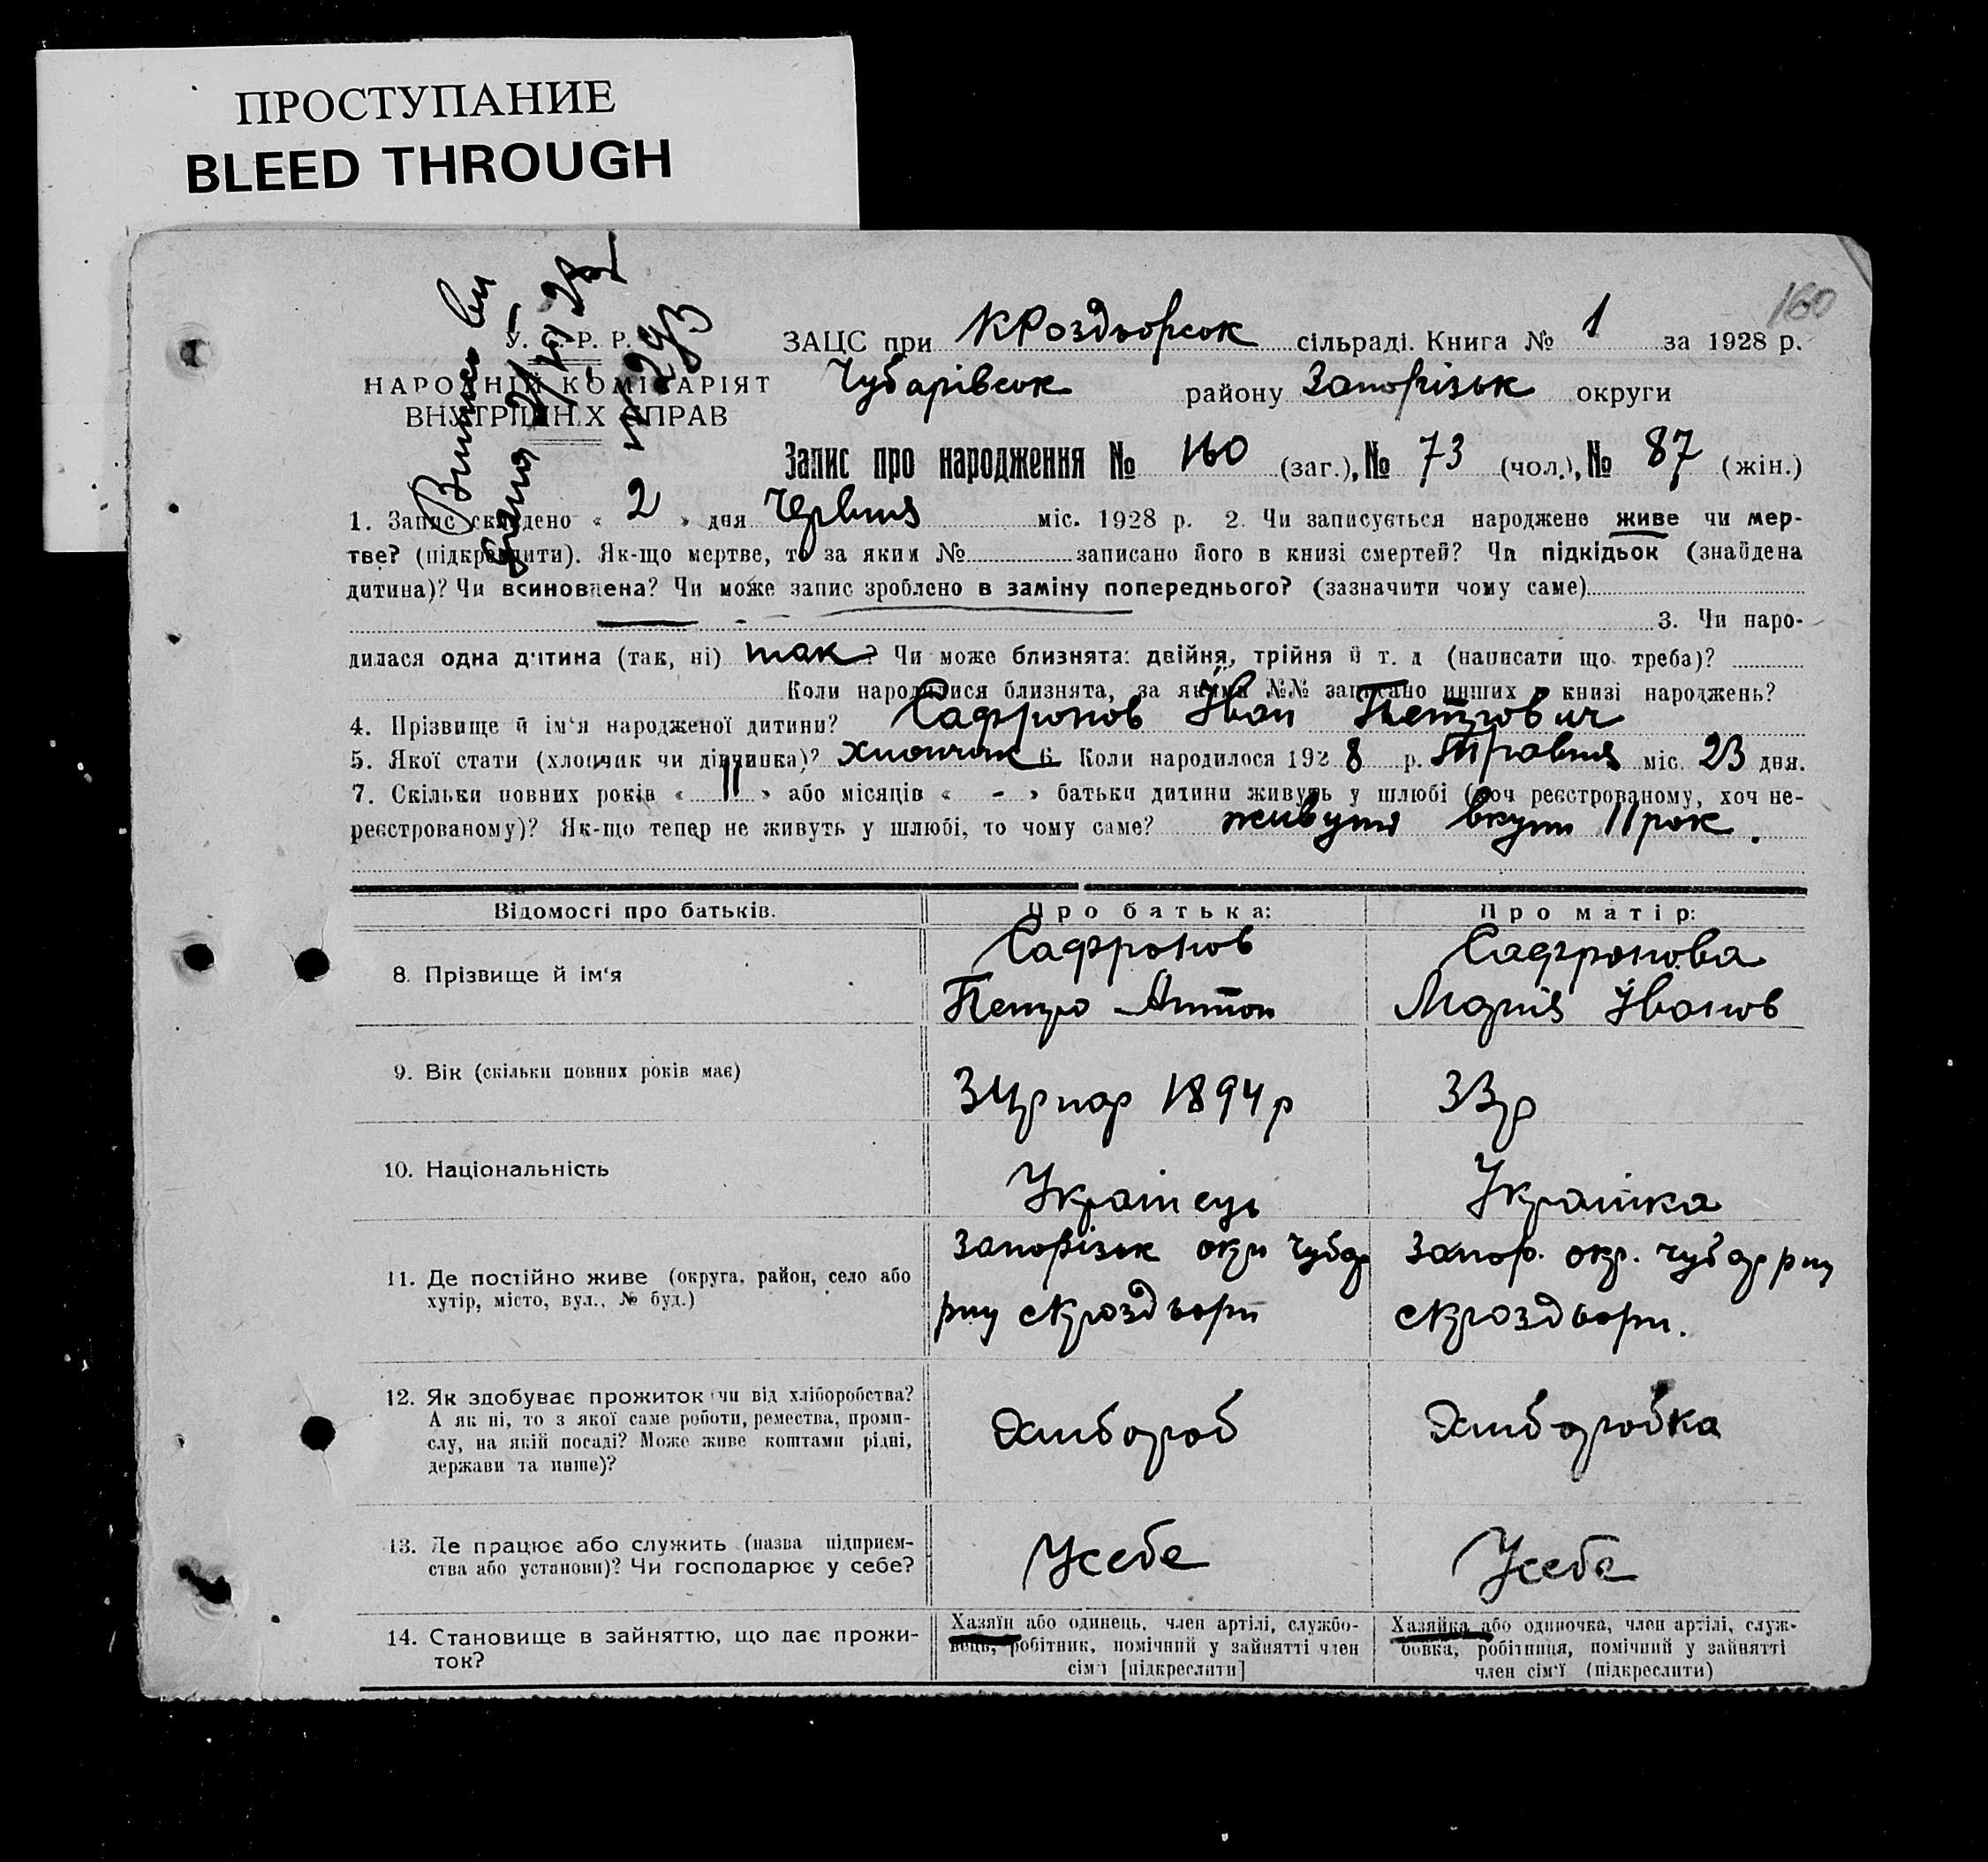 ПРОСТУПАНИЕ
BLEED THROUGH
160
У. С. Р. Р.
НАРОДНІЙ КОМІСАРІЯТ
ВНУТРІШНІХ СПРАВ
ЗАЦС при КРоздорськ сільраді. Книга № 1 за 1928 р.
Чубарівськ району Запорізьк округи
Запис про народження № 160 (заг.), № 73 (чол.), № 87 (жін.)
1. Запис складено « 2 » дня Червня міс. 1928 р. 2. Чи записується народжене живе чи мер-
тве? (підкреслити). Як-що мертве, то за яким № записано його в книзі смертей? Чи підкідьок (знайдена
дитина)? Чи всиновлена? Чи може запис зроблено в заміну попереднього? (зазначити чому саме)
3. Чи наро-
дилася одна дитина (так, ні) так? Чи може близнята: двійня, трійня й т. д (написати що треба)?
Коли народилися близнята, за якими №№ записано инших в книзі народжень?
4. Прізвище й ім‘я народженої дитини? Сафронов Іван Петрович
5. Якої стати (хлопчик чи дівчинка)? хлопчик 6. Коли народилося 1928 р. Травня міс. 23 дня.
7. Скільки повних років « 11 » або місяців « - » батьки дитини живуть у шлюбі (хоч реєстрованому, хоч не-
реєстрованому)? Як-що тепер не живуть у шлюбі, то чому саме? живуть вкупі 11 рок.
Відомості про батьків. Про батька: Про матір:
8. Прізвище й ім‘я
Сафронов
Петро Антон
Сафронова
Марія Іванов
9. Вік (скільки повних років має)
34р нар 1894 р
33р
10. Національність
Українець
Українка
11. Де постійно живе (округа, район, село або
хутір, місто, вул., № буд.)
Запорізьк окр Чубар
Запор. окр. Чубар рну
12. Як здобуває прожиток чи від хліборобства?
А як ні, то з якої саме роботи, ремества, проми-
слу, на якій посаді? Може живе коштами рідні,
держави та инше)?
Хлібороб
Хліборобка
13. Де працює або служить (назва підприєм-
ства або установи)? Чи господарює у себе?
Усебе
Усебе
14. Становище в зайняттю, що дає прожи-
ток?
Хазяїн або одинець, член артілі, службо-
вець, робітник, помічний у зайнятті член
сім‘ї [підкреслити]
Хазяйка або одиночка, член артілі, служ-
бовка, робітниця, помічний у зайнятті
член сім‘ї (підкреслити)